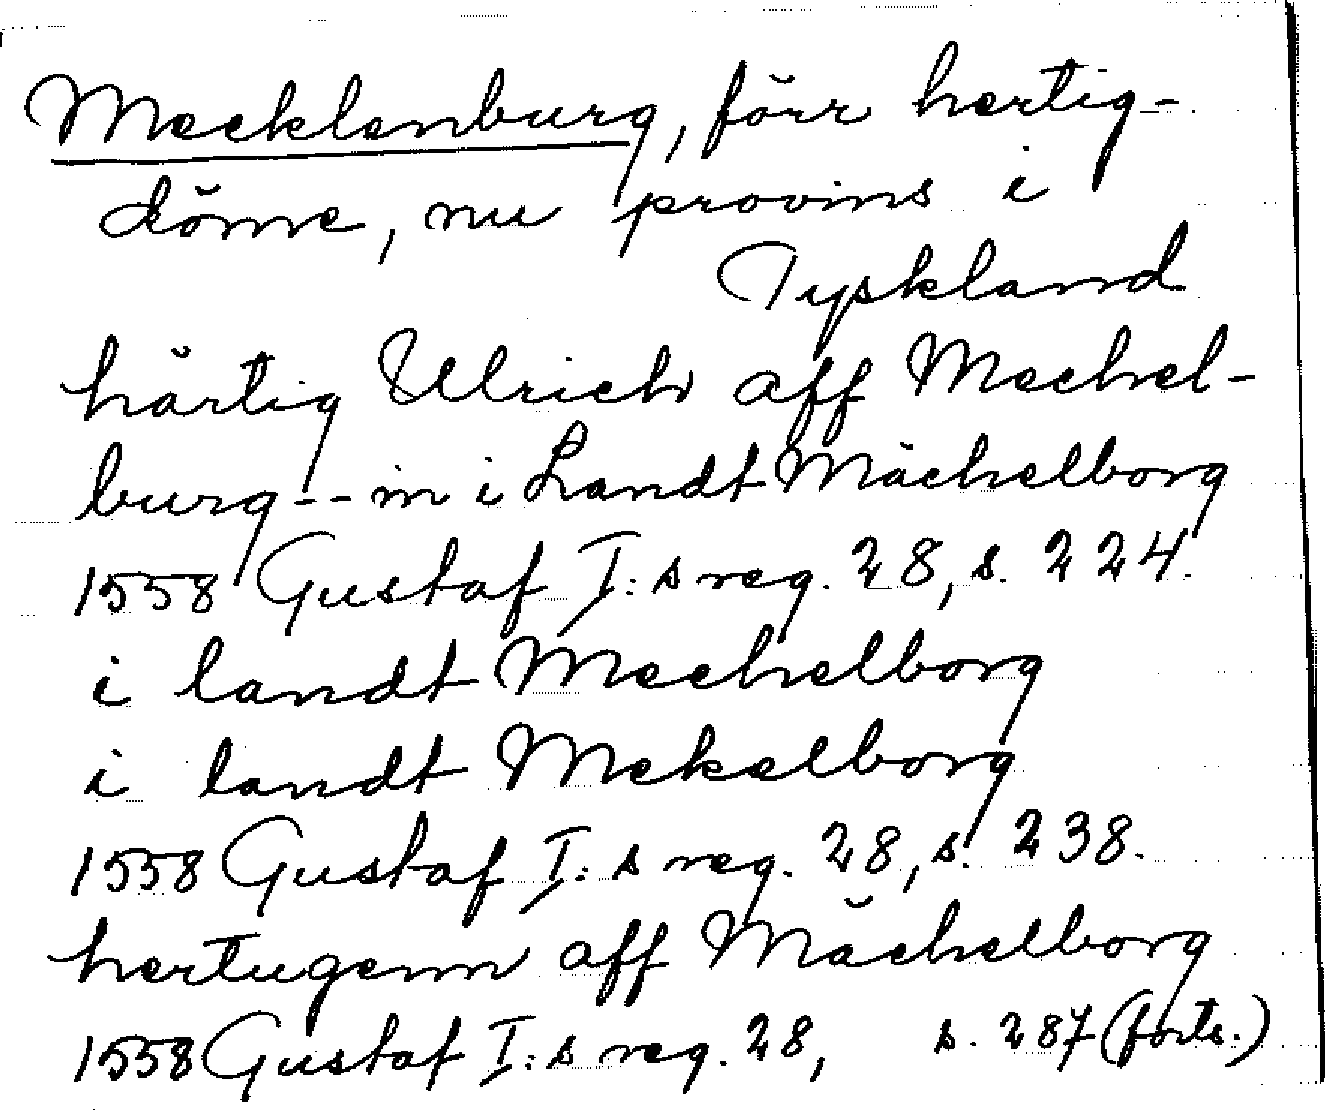 Mecklenburg, förr hertig-
döme, nu provins i
Tyskland
härtig Ulrich aff Mechel-
burg -- in i Landt Mächelborg
1558 Gustaf I:s reg. 28, s. 224.
i landt Mechelborg
i landt Mekelborg
1558 Gustaf I:s reg. 28, s. 238.
hertugenn aff Mächelborg
1558 Gustaf I:s reg. 28, s. 287 (forts.)